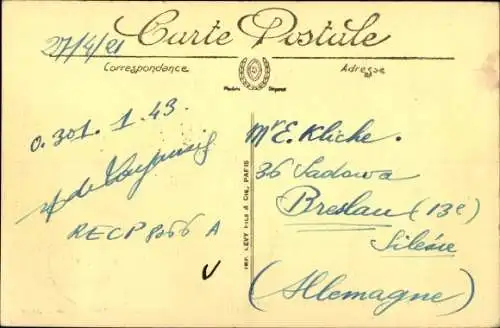 27/4/21
Carte Postale
Correspondance
Adresse
Modèle Déposé
0.301.1.43.
de
RECP 8266 A
V
IMP. LÉVY FILS & CIE, PARIS
Mr E. Kliche.
36 Sadowa
Breslau (13e)
Silésie
(Allemagne)